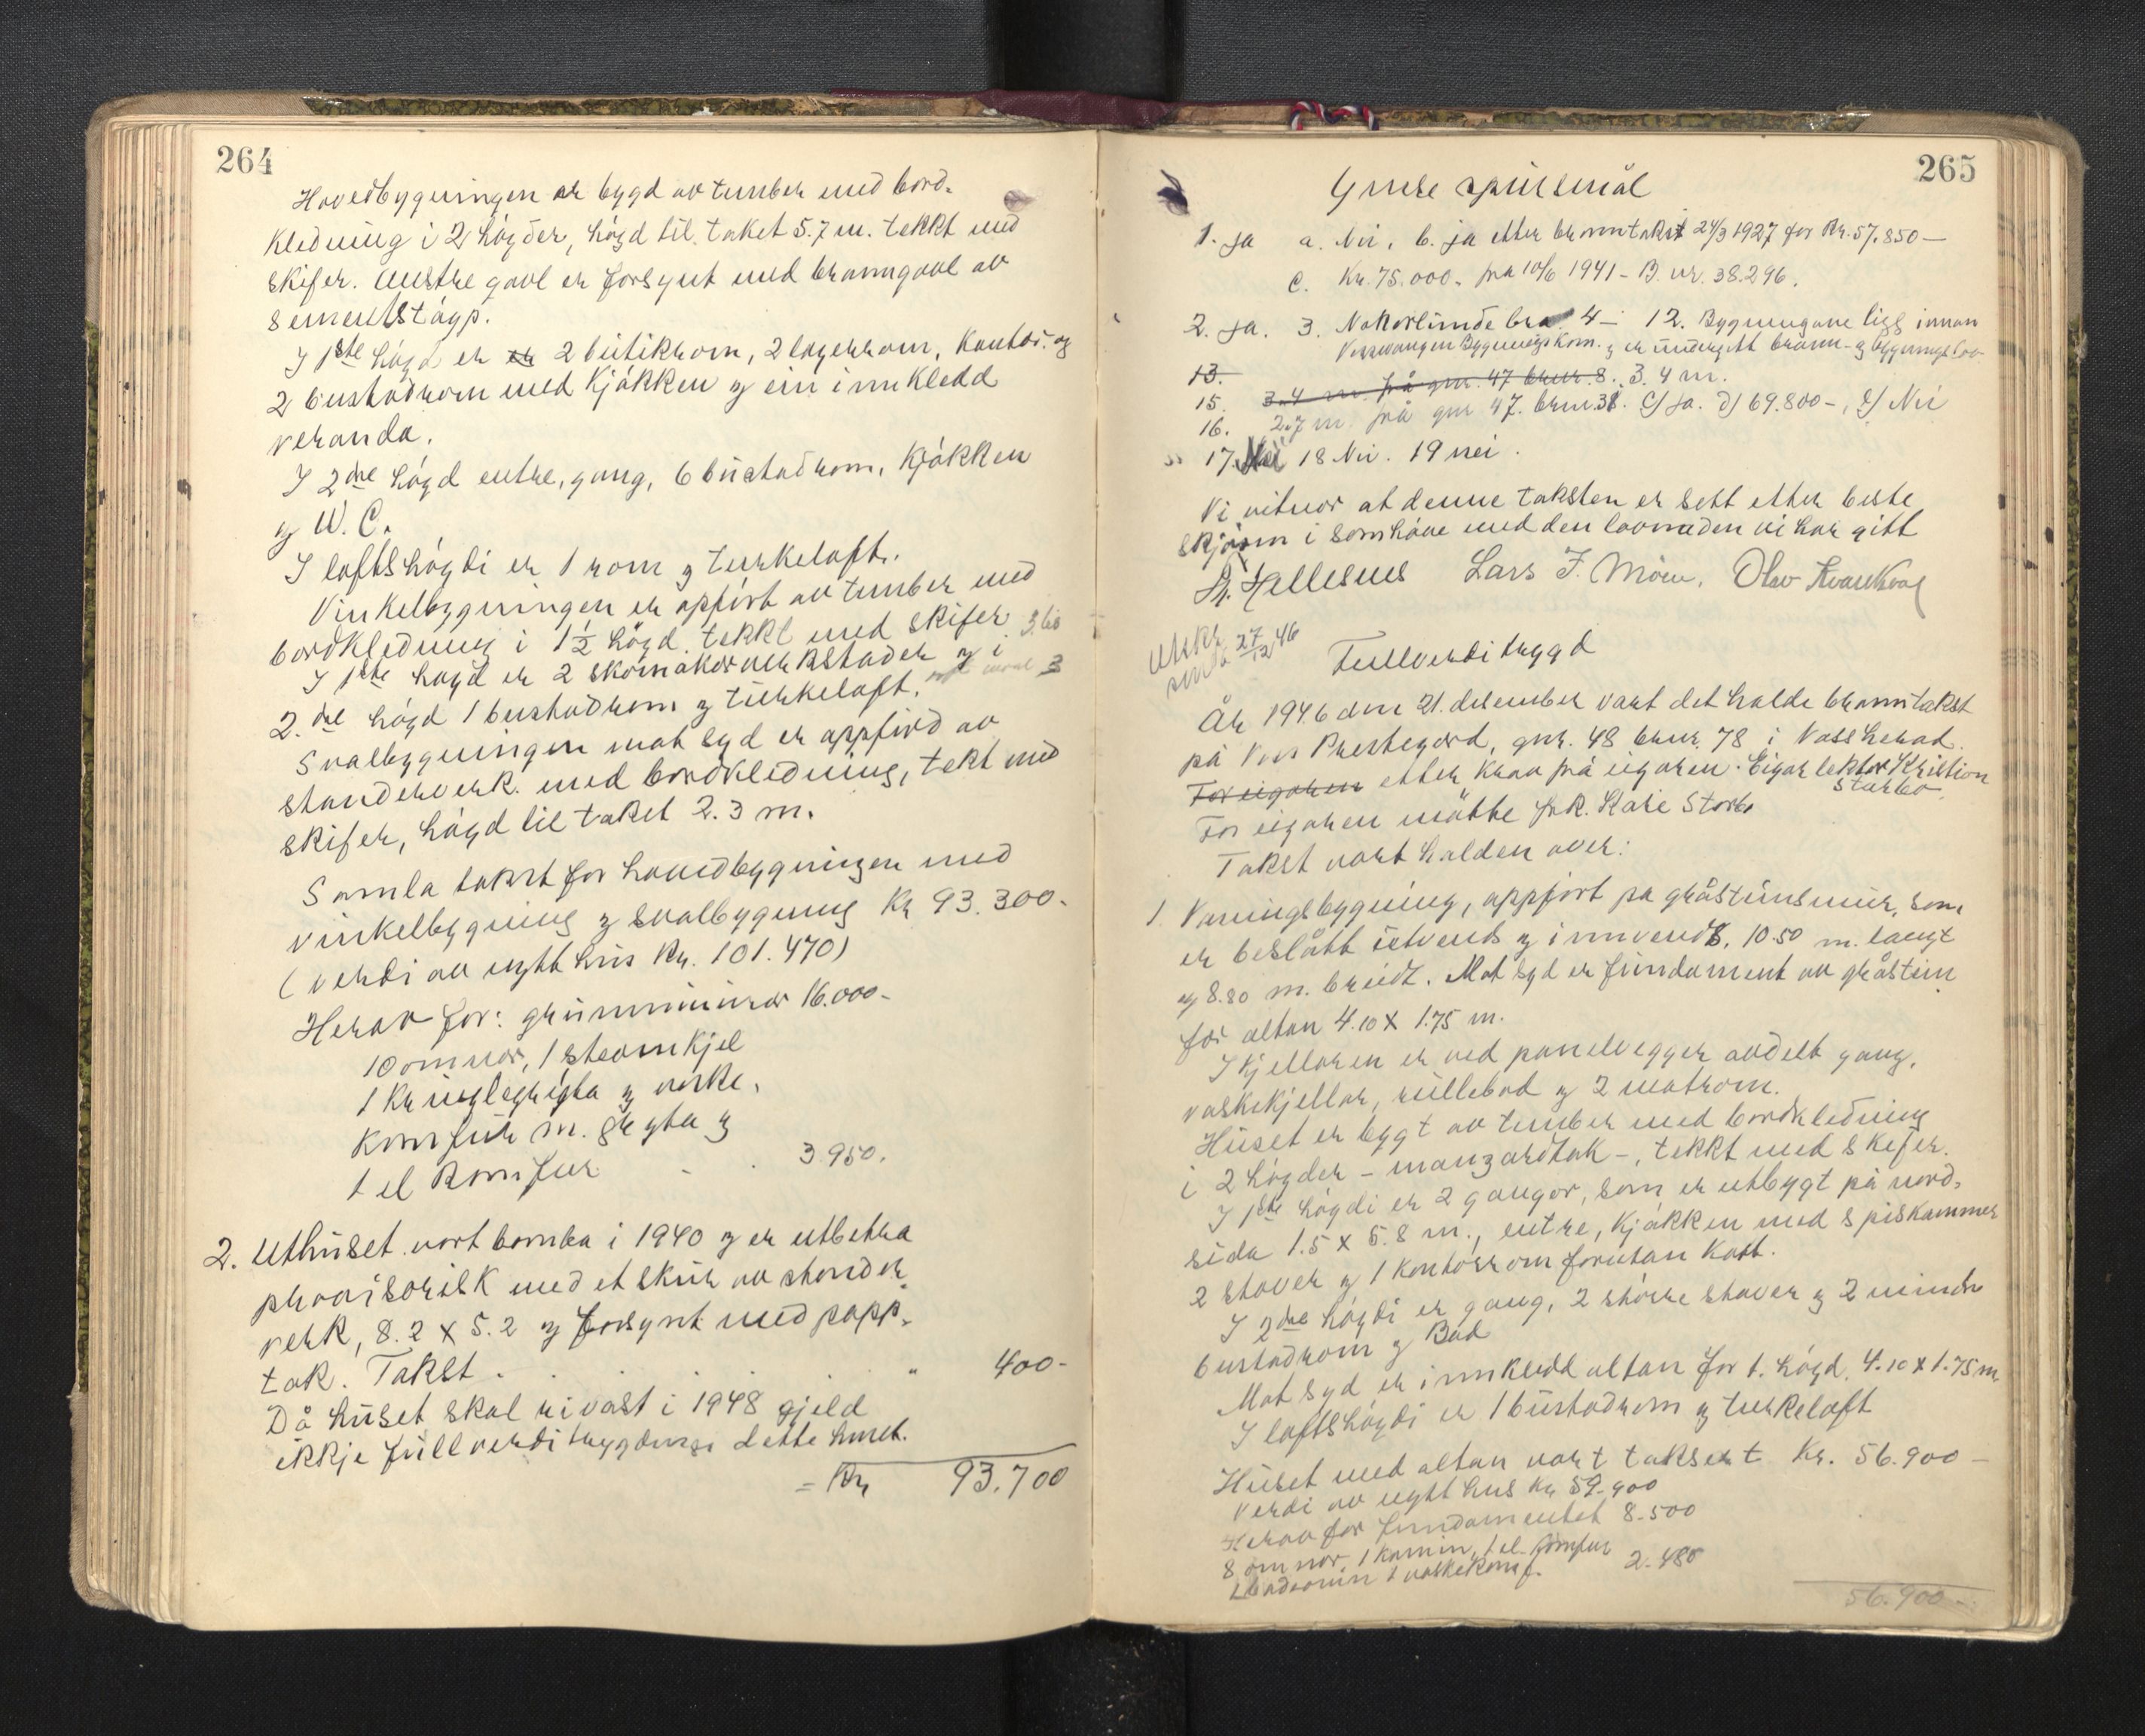 264
Hovedbygningen er bygd av tømber med bord-
kledning i 2 høgder, høgd til taket 5.7 m. tekkt med
skifer. Austre gavl er forsynt med branngavl av
sementstøyp.
I 1ste høgd er er 2 butikkrom, 2 lagerrom, Kontor. og
2 bustadrom med Kjøkken og ein innkledd
veranda.
I 2dre høgd entre, gang, 6 bustadrom, Kjøkken
og W.C.
I loftshøgdi er 1 rom og turkeloft.
Vinkelbygningen er oppført av tømber med
bordkledning i 1½ høgd. tekkt med skifer
I 1ste høgd er 2 skomakarverkstader og i
2.dre høgd 1 bustadrom og turkeloft.
Svalbygningen mot syd er oppførd av
standerverk. med bordkledning, tekt med
skifer, høgd til taket 2.3 m.
Samla takst for hovedbygningen med
vinkelbygning og svalbygning Kr 93.300-
(verdi av nytt hus Kr. 101.470)
Herav for: grunnmurar 16.000-
10 omnar, 1 steamkjel
1 kringlegryta og vaske,
Komfur m. gryta og
1 el Komfur - . 3.950.
2. Uthuset vart bomba i 1940 og er utbetra
provisorisk med et skur av stender
verk, 8.2 x 5.2 og forsynt med papp-
tak. Takst . . . . . " 400-
Då huset skal rivast i 1948 gjeld
ikkje fullverditrygdingi dette huset.
= Kr 93.700
265
Ymse spursmål
1. Ja a. Nei, b. ja etter branntakst 24/3 1927 for Kr. 57.850 —
c. Kr. 75.000. frå 10/6 1941 – B. nr. 38.296.
2. Ja. 3. Nokorlunde bra 4 – 12. Bygningane ligg innan
Vossevangen Bygningskom. og er undergitt brann- og bygningslov
13.
15. 3.4 m frå gnr. 47 bnr. 8. 3.4 m.
16. 2.7 m frå gnr 47. bnr. 38. c) Ja. d) 69.800 –, e) Nei
17. Nei 18 Nei. 19 nei.
Vi vitnar at denne taksten er sett etter beste
skjønn i samhøve med den lovnaden vi har gitt
Lars F. Møen. Olav Kvarekval
Utskr.
sendt 27/12 46
Fullverditrygd
År 1946 den 21. desember vart det halde branntakst
på Voss Prestegard, gnr. 48 bnr. 78 i Voss herad.
For eigaren etter krav frå eigaren. Eigar lektor Kristian
Størbo
For eigaren møtte frk. Kari Størbo
Takst vart halden over:
1. Våningsbygning, oppført på gråsteinsmur, som
er beslått utvends og innvends. 10.50 m. langt
og 8.80 m. breidt. Mot syd er fundament av gråstein
for altan 4.10 x 1.75 m.
I Kjellaren er ved panelvegger avdelt gang,
vaskekjellar, rullebod og 2 matrom.
Huset er bygt av tømber med bordkledning
i 2 høgder – manzardtak –, tekkt med skifer.
I 1ste høgdi er 2 gangar, som er utbygt på nord-
sida 1.5 x 5.8 m., entre, Kjøkken med spiskammer
2 stover og 1 kontorrom forutan Kott.
I 2dre høgdi er gang, 2 større stover og 2 mindre
bustadrom og Bad
Mot syd er innkledd altan for 1. høgd. 4.10 x 1.75 m.
I loftshøgdi er 1 bustadrom og turkeloft
Huset med altan vart taksert Kr. 56.900 –
Verdi av nytt hus Kr 59.900
Herav for fundamentet 8.500
8 omnar, 1 kamin, 1 el. Komfur
1 badeomn 1 vaskekomf. 2.480
56.900 –